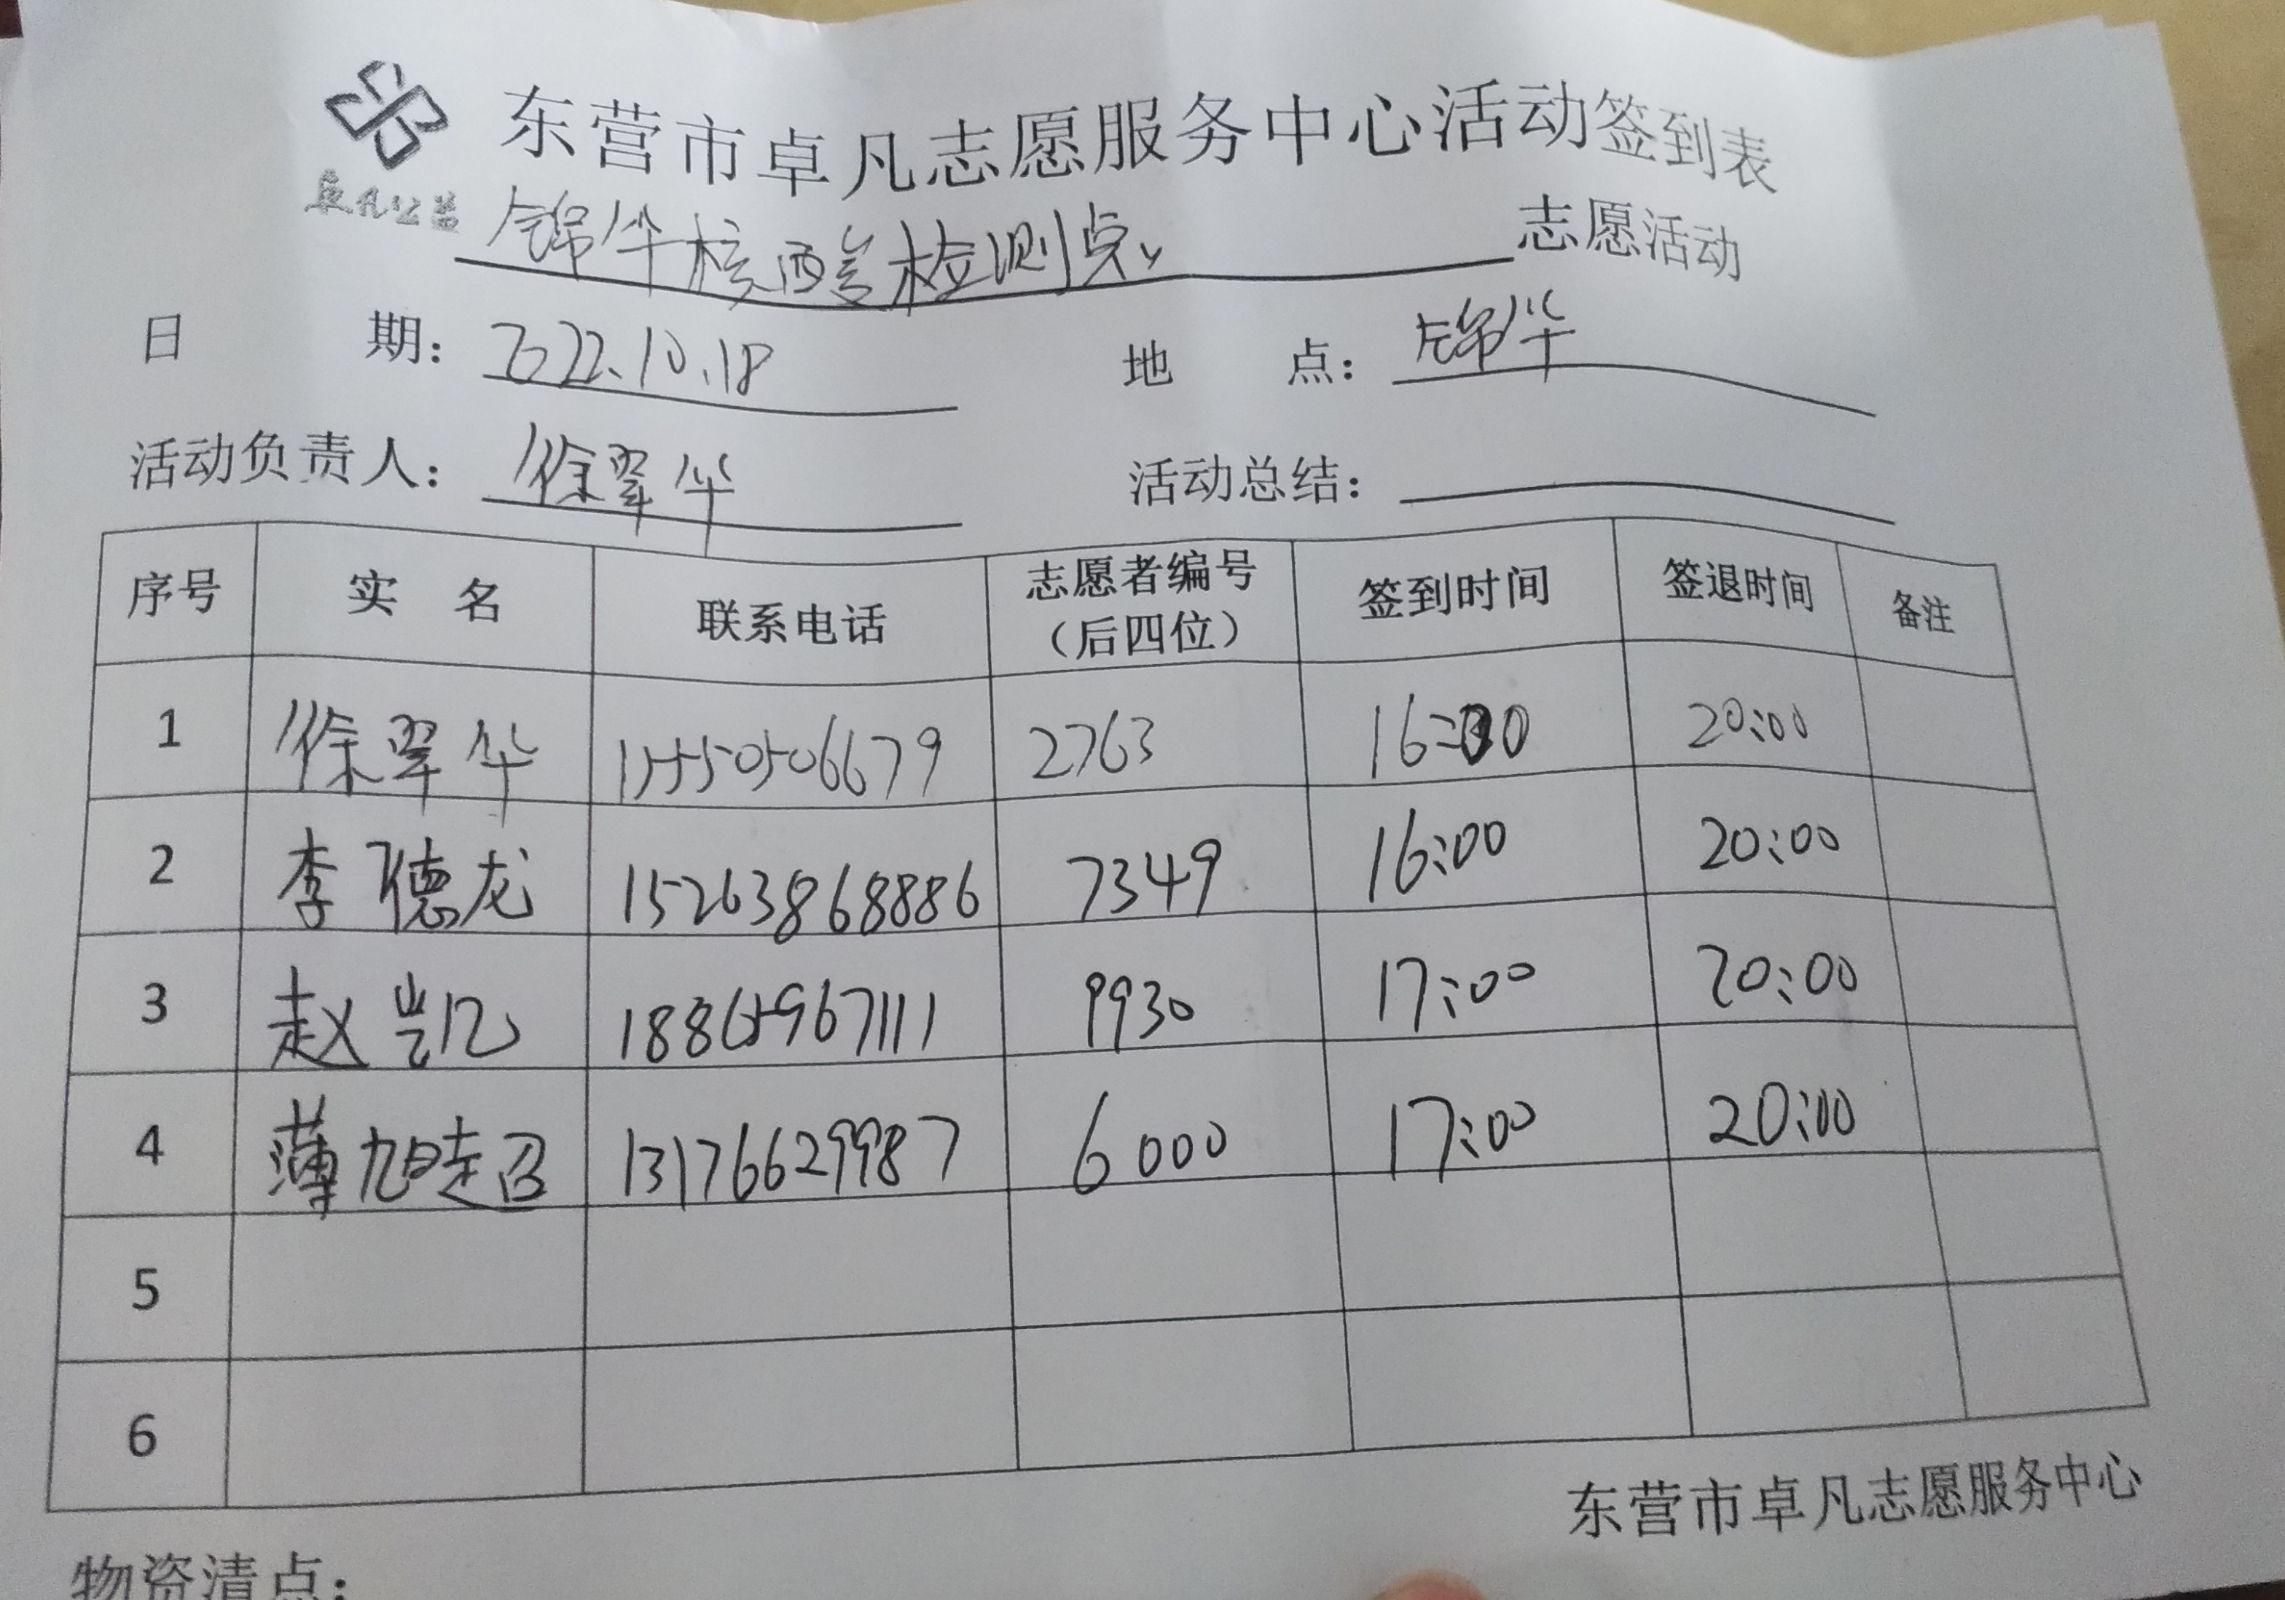 东营市卓凡志愿服务中心活动签到表
卓凡公益
锦华核酸检测点 志愿活动
日 期：2022.10.18 地 点：锦华
活动负责人：徐翠华 活动总结：
序号 实 名 联系电话 志愿者编号（后四位） 签到时间 签退时间 备注
1 徐翠华 2763 20:00
2 李德龙 15263868886 7349 16:00 20:00
3 赵凯 9930 17:00 20:00
4 薄旭超 13176629987 6000 17:00 20:00
5
6
东营市卓凡志愿服务中心
物资清点：